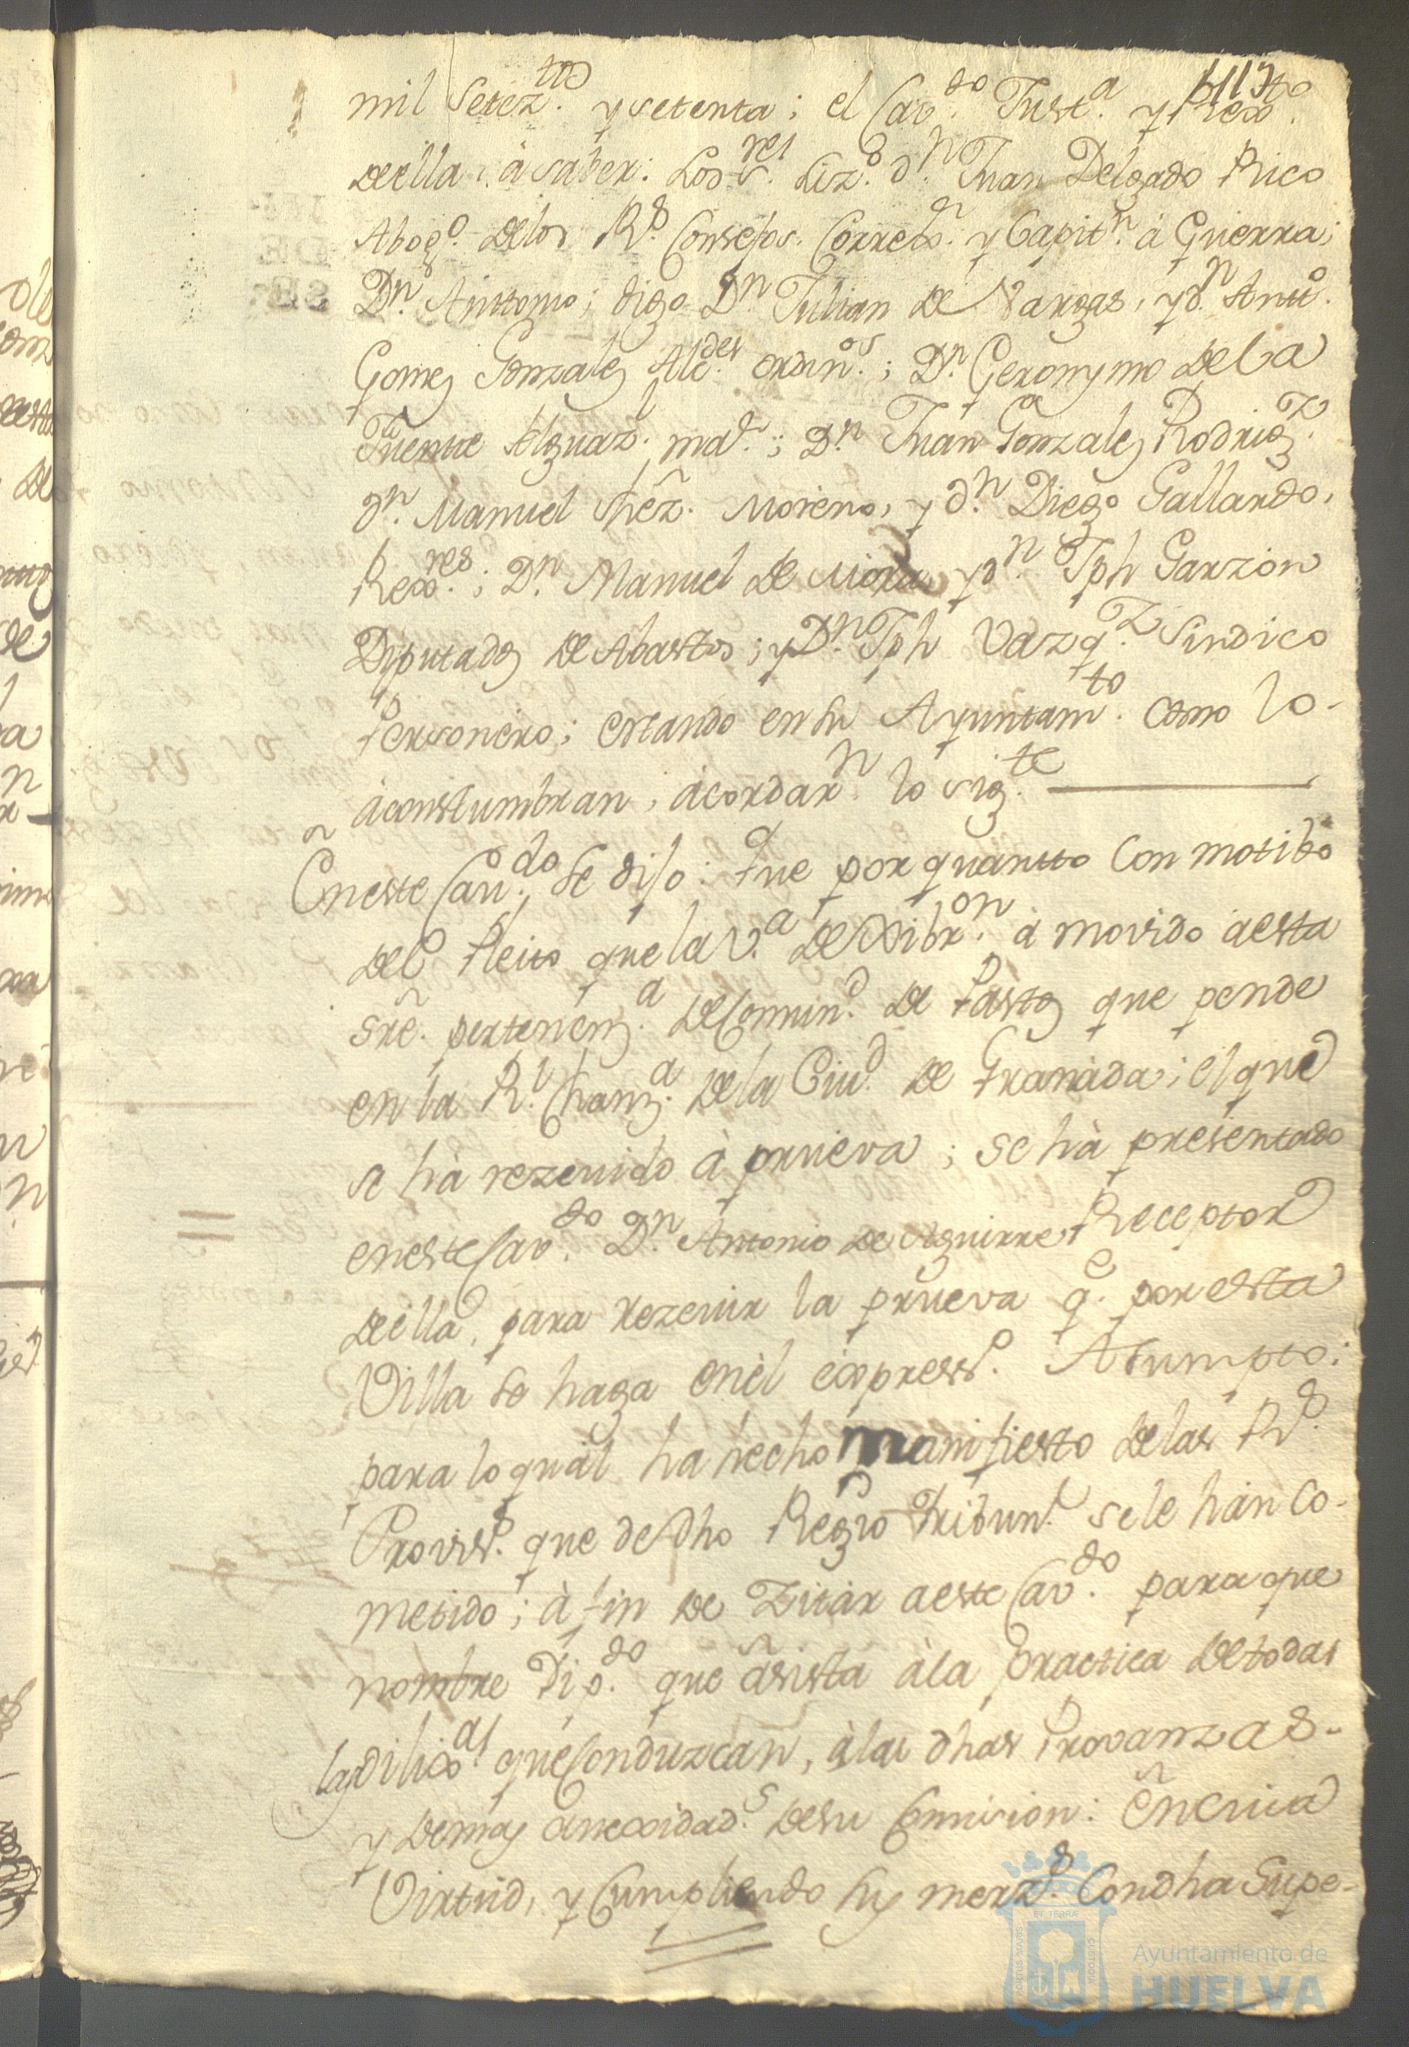 117
mil Setez.tos y setenta; el Cav.do Just.a y Rex.to
de ella; â saber: Los S.res Liz.do d.n Juan Delgado Rico
Abog.o de los R.s Consejos. Correx.r y Capit.n â Guerra;
D.n Anttonio; digo D.n Julian de Vargas, y d.n Antt.o
Gomez Gonzalez Alc.des ordin.os; D.n Geronymo de la
Fuente Alguaz.l ma.r; D.n Juan Gonzalez Rodrig.z
d.n Manuel Shẽz. Moreno, y d.n Diego Gallardo,
Rex.res; D.n Manuel de Mora y d.n Jph Garzon
Diputados de Abastos; y D.n Jph Vazq.z Sindico
Personero; estando en su Ayuntam.to como lo-
âcostumbran, âcordar.n lo sig.te
En este Cav.do se dijo: Que por quantto con motibo
del Pleito que la V.a de Xibr.on â movido a esta
sre. pertenenz.a de Comun.d de Pastos que pende
en la R.l Chanz.a de la Ciu.d de Granada; el que
se hà rezevido â prueva; se hà presentado
en este Cav.do D.n Antonio de Aguirre Receptor
de ella, para rezevir la prueva q.e por esta
Villa se haga en èl express.do Asumpto:
para lo qual ha hecho manifiesto de las R.s
Provis.s que de dho Regio Tribun.l se le hàn co-
metido; â fin de Zitàr a este Cav.do para que
nombre Dip.do que âsista â la practica de todas
las dilix.as que Conduzcan, â las dhas Provanzas-
y demas anexidad.s de su Comision: En cuia
Virtud, y Cumpliendo sus merz.s Con dha Supe-
Ayuntamiento de
HUELVA